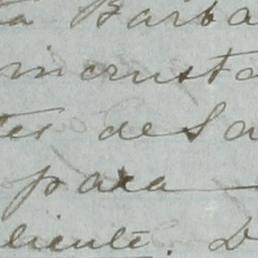 ta Barba
incrusta
tes de Sa
para
liente. D